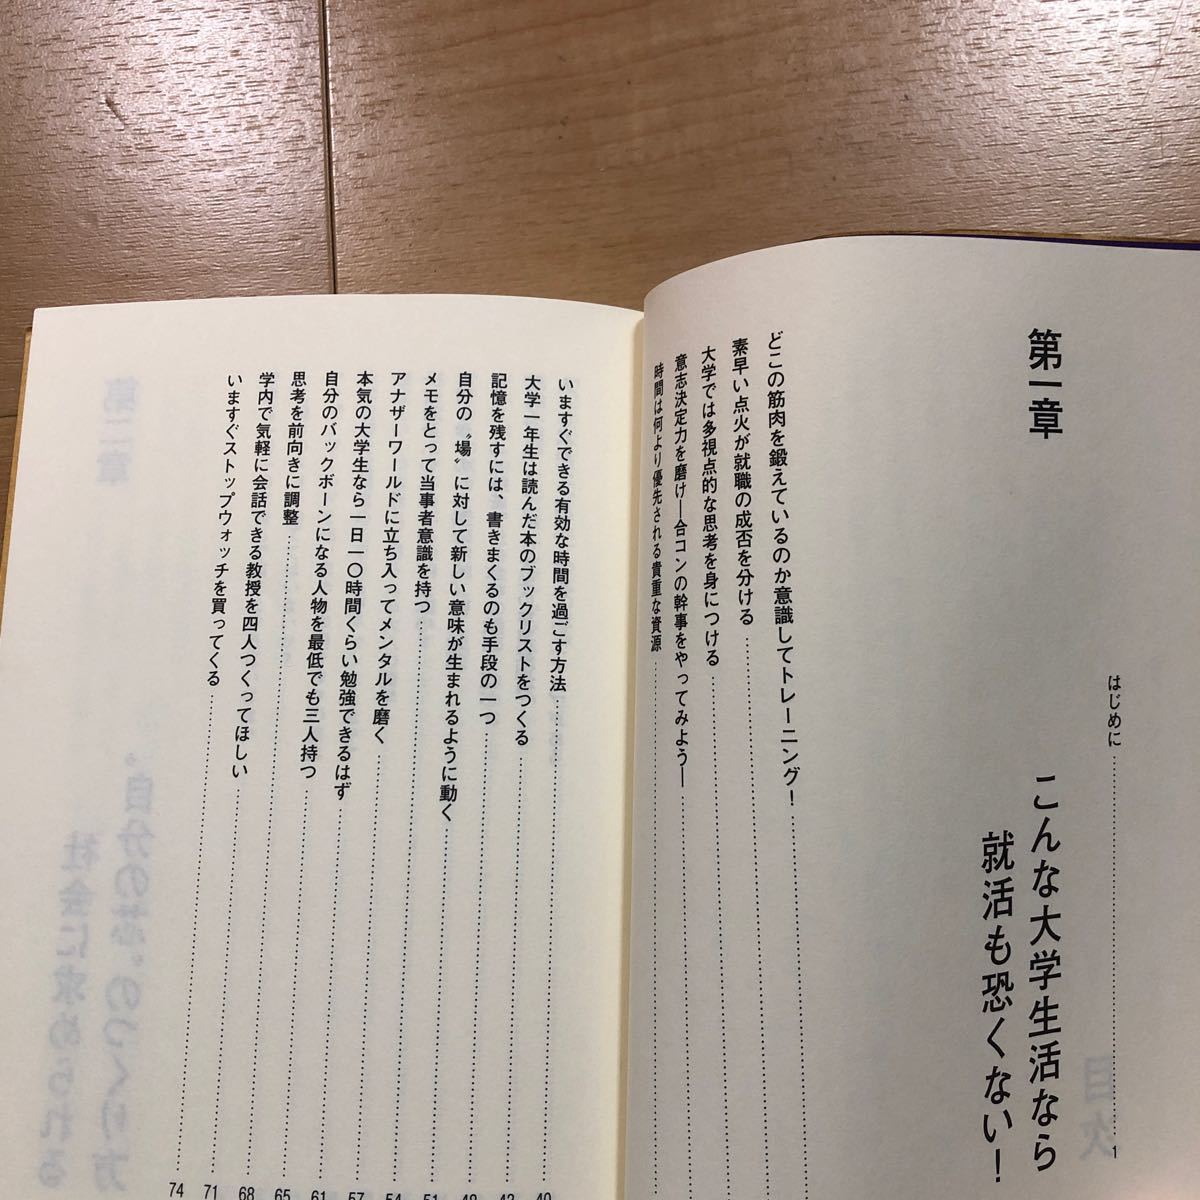 はじめに……………………1
第一章
こんな大学生活なら
就活も恐くない！
どこの筋肉を鍛えているのか意識してトレーニング！
素早い点火が就職の成否を分ける
大学では多視点的な思考を身につける
意志決定力を磨け―合コンの幹事をやってみよう―
時間は何より優先される貴重な資源
いますぐできる有効な時間を過ごす方法……………………40
大学一年生は読んだ本のブックリストをつくる……………………43
記憶を残すには、書きまくるのも手段の一つ……………………48
自分の〝場〟に対して新しい意味が生まれるように動く……………………51
メモをとって当事者意識を持つ……………………54
アナザーワールドに立ち入ってメンタルを磨く……………………57
本気の大学生なら一日一〇時間くらい勉強できるはず……………………61
自分のバックボーンになる人物を最低でも三人持つ……………………65
思考を前向きに調整……………………68
学内で気軽に会話できる教授を四人つくってほしい……………………71
いますぐストップウォッチを買ってくる……………………74
目次
第二章
〝自分の芯〟のつくり方
社会に求められる